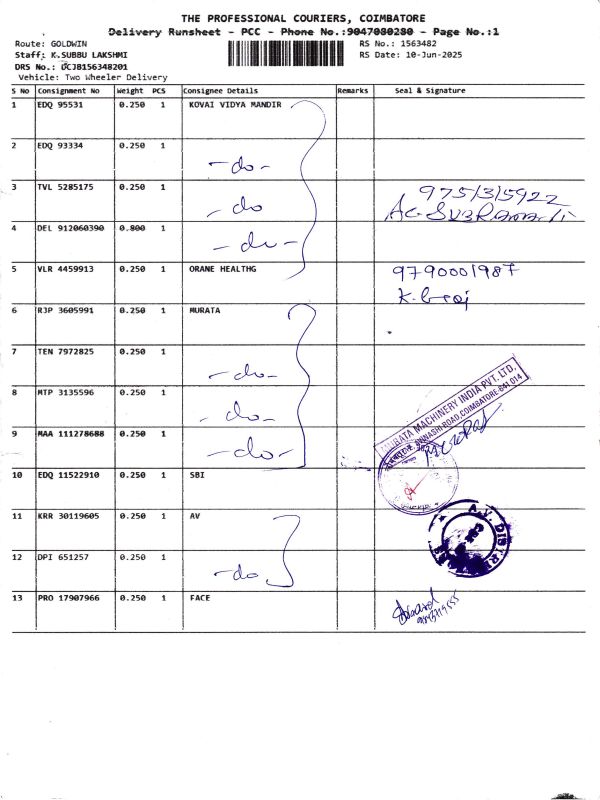 THE PROFESSIONAL COURIERS, COIMBATORE
Delivery Runsheet - PCC - Phone No.:9047080280 - Page No.:1
Route: GOLDWIN RS No.: 1563482
Staff: K.SUBBU LAKSHMI RS Date: 10-Jun-2025
DRS No.: UCJB156348201
Vehicle: Two Wheeler Delivery
S No Consignment No Weight PCS Consignee Details Remarks Seal & Signature
1 EDQ 95531 0.250 1 KOVAI VIDYA MANDIR
2 EDQ 93334 0.250 1 -do-
3 TVL 5285175 0.250 1 -do 9751315922
4 DEL 912060390 0.800 1 -do-
5 VLR 4459913 0.250 1 ORANE HEALTHG 9790001987
6 RJP 3605991 0.250 1 MURATA
7 TEN 7972825 0.250 1 -do-
8 MTP 3135596 0.250 1 -do-
9 MAA 111278688 0.250 1 -do-
MURATA MACHINERY INDIA PVT. LTD.
AVINASHI ROAD, COIMBATORE-641 014
10 EDQ 11522910 0.250 1 SBI
11 KRR 30119605 0.250 1 AV
12 DPI 651257 0.250 1 -do
13 PRO 17907966 0.250 1 FACE